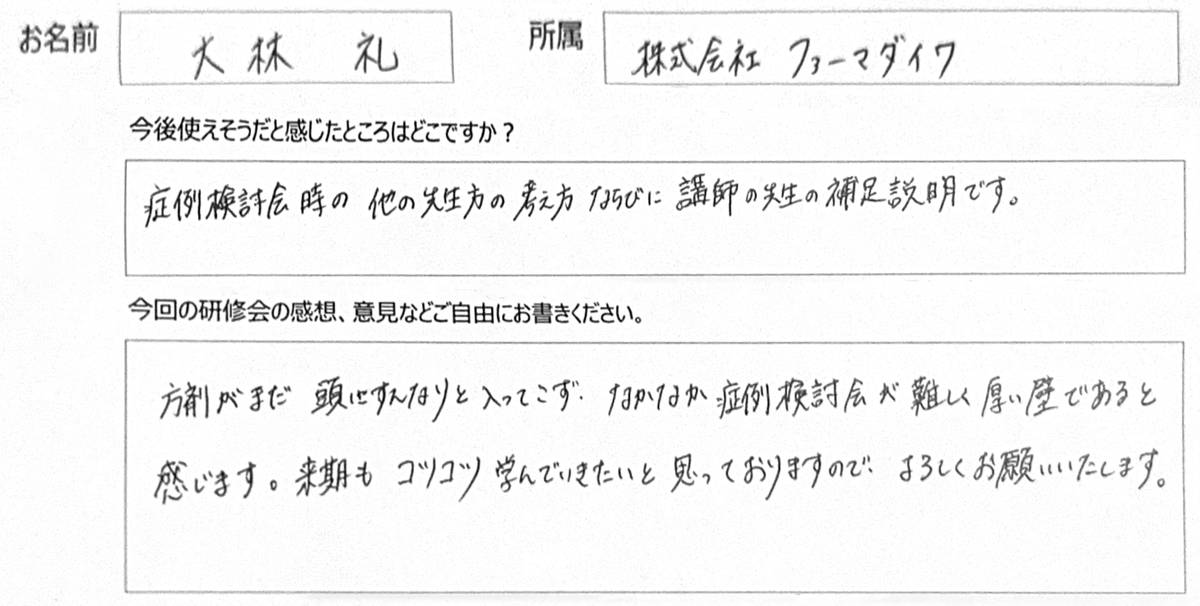 お名前 大林 礼 所属 株式会社 ファーマダイワ
今後使えそうだと感じたところはどこですか？
症例検討会時の 他の先生方の 考え方 ならびに 講師の先生の補足説明です。
今回の研修会の感想、意見などご自由にお書きください。
方剤がまだ 頭にすんなりと 入ってこず、なかなか 症例検討会が 難しく 厚い壁であると
感じます。来期も コツコツ 学んでいきたいと 思っておりますので、よろしくお願いいたします。